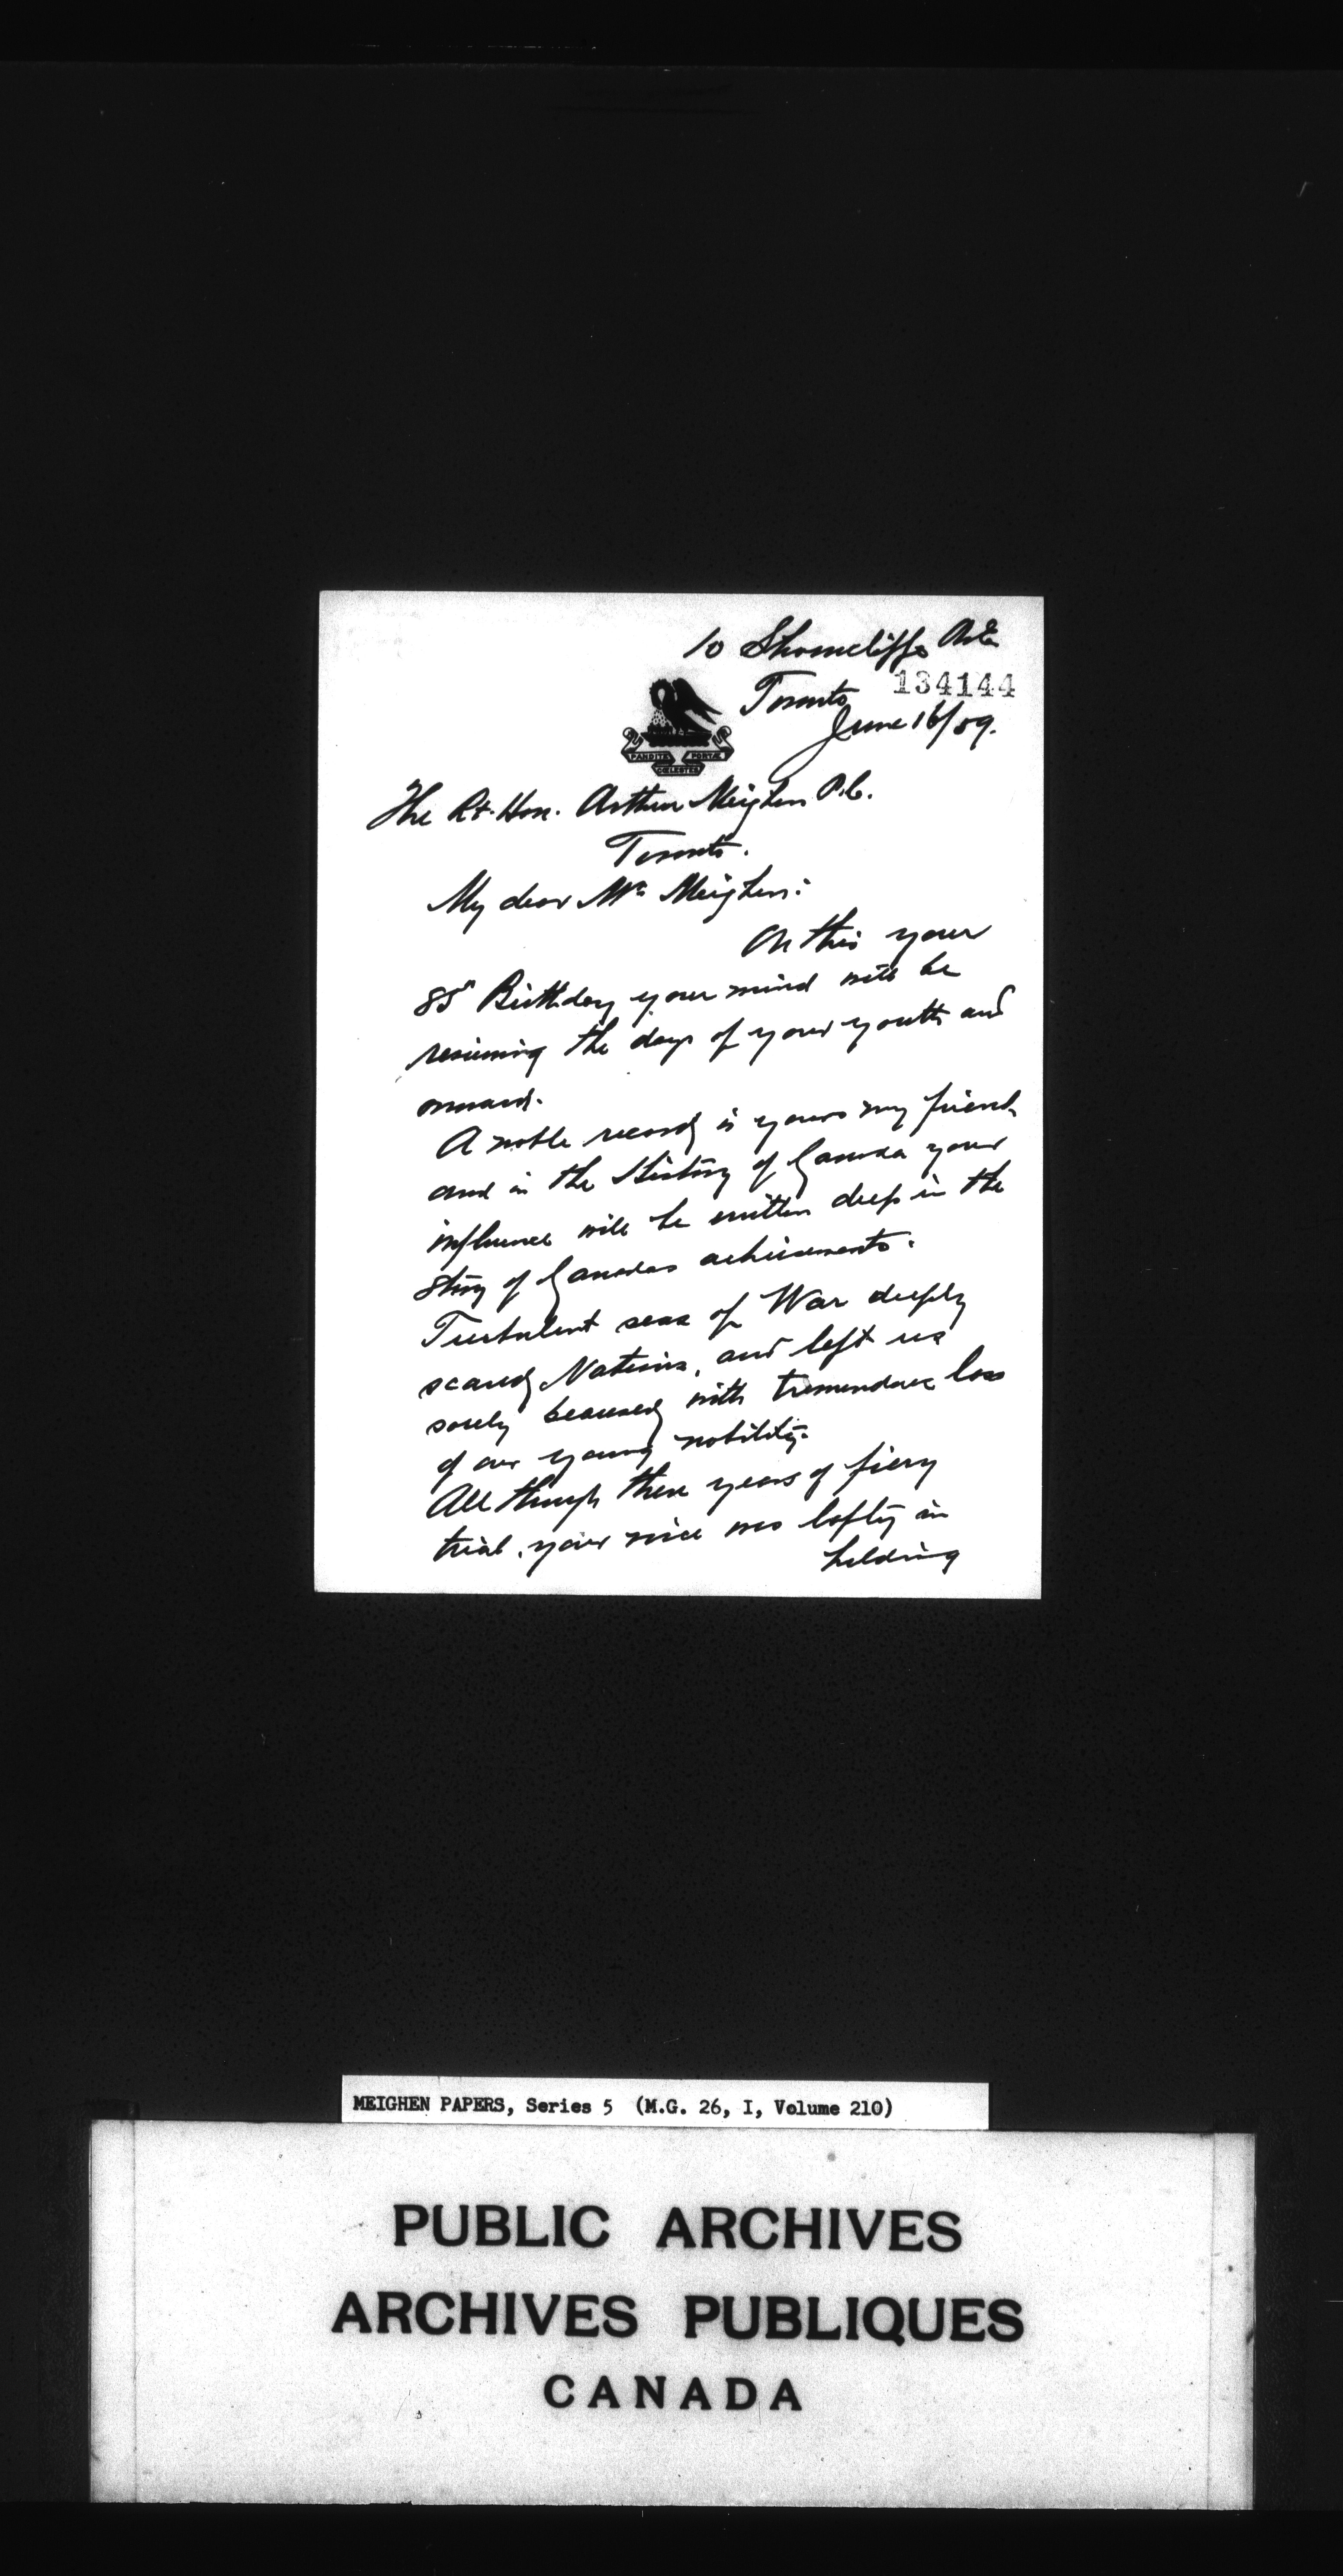 10 Shorncliffe Ave
134144
Toronto
June 16/59.
PANDITE PORTÆ
CŒLESTES
The Rt. Hon. Arthur Meighen P.C.
Toronto.
My dear Mr Meighen:
On this your
85th Birthday your mind will be
reviewing the days of your youth and
onward.
A noble record is yours my friend
and in the History of Canada your
influence will be written deep in the
story of Canadas achievements.
Turbulent seas of War deeply
scared Nations, and left us
sorely bereaved with tremendous loss
of our young nobility.
All through these years of fiery
trial, your voice was lofty in
holding
MEIGHEN PAPERS, Series 5 (M.G. 26, I, Volume 210)
PUBLIC ARCHIVES
ARCHIVES PUBLIQUES
CANADA